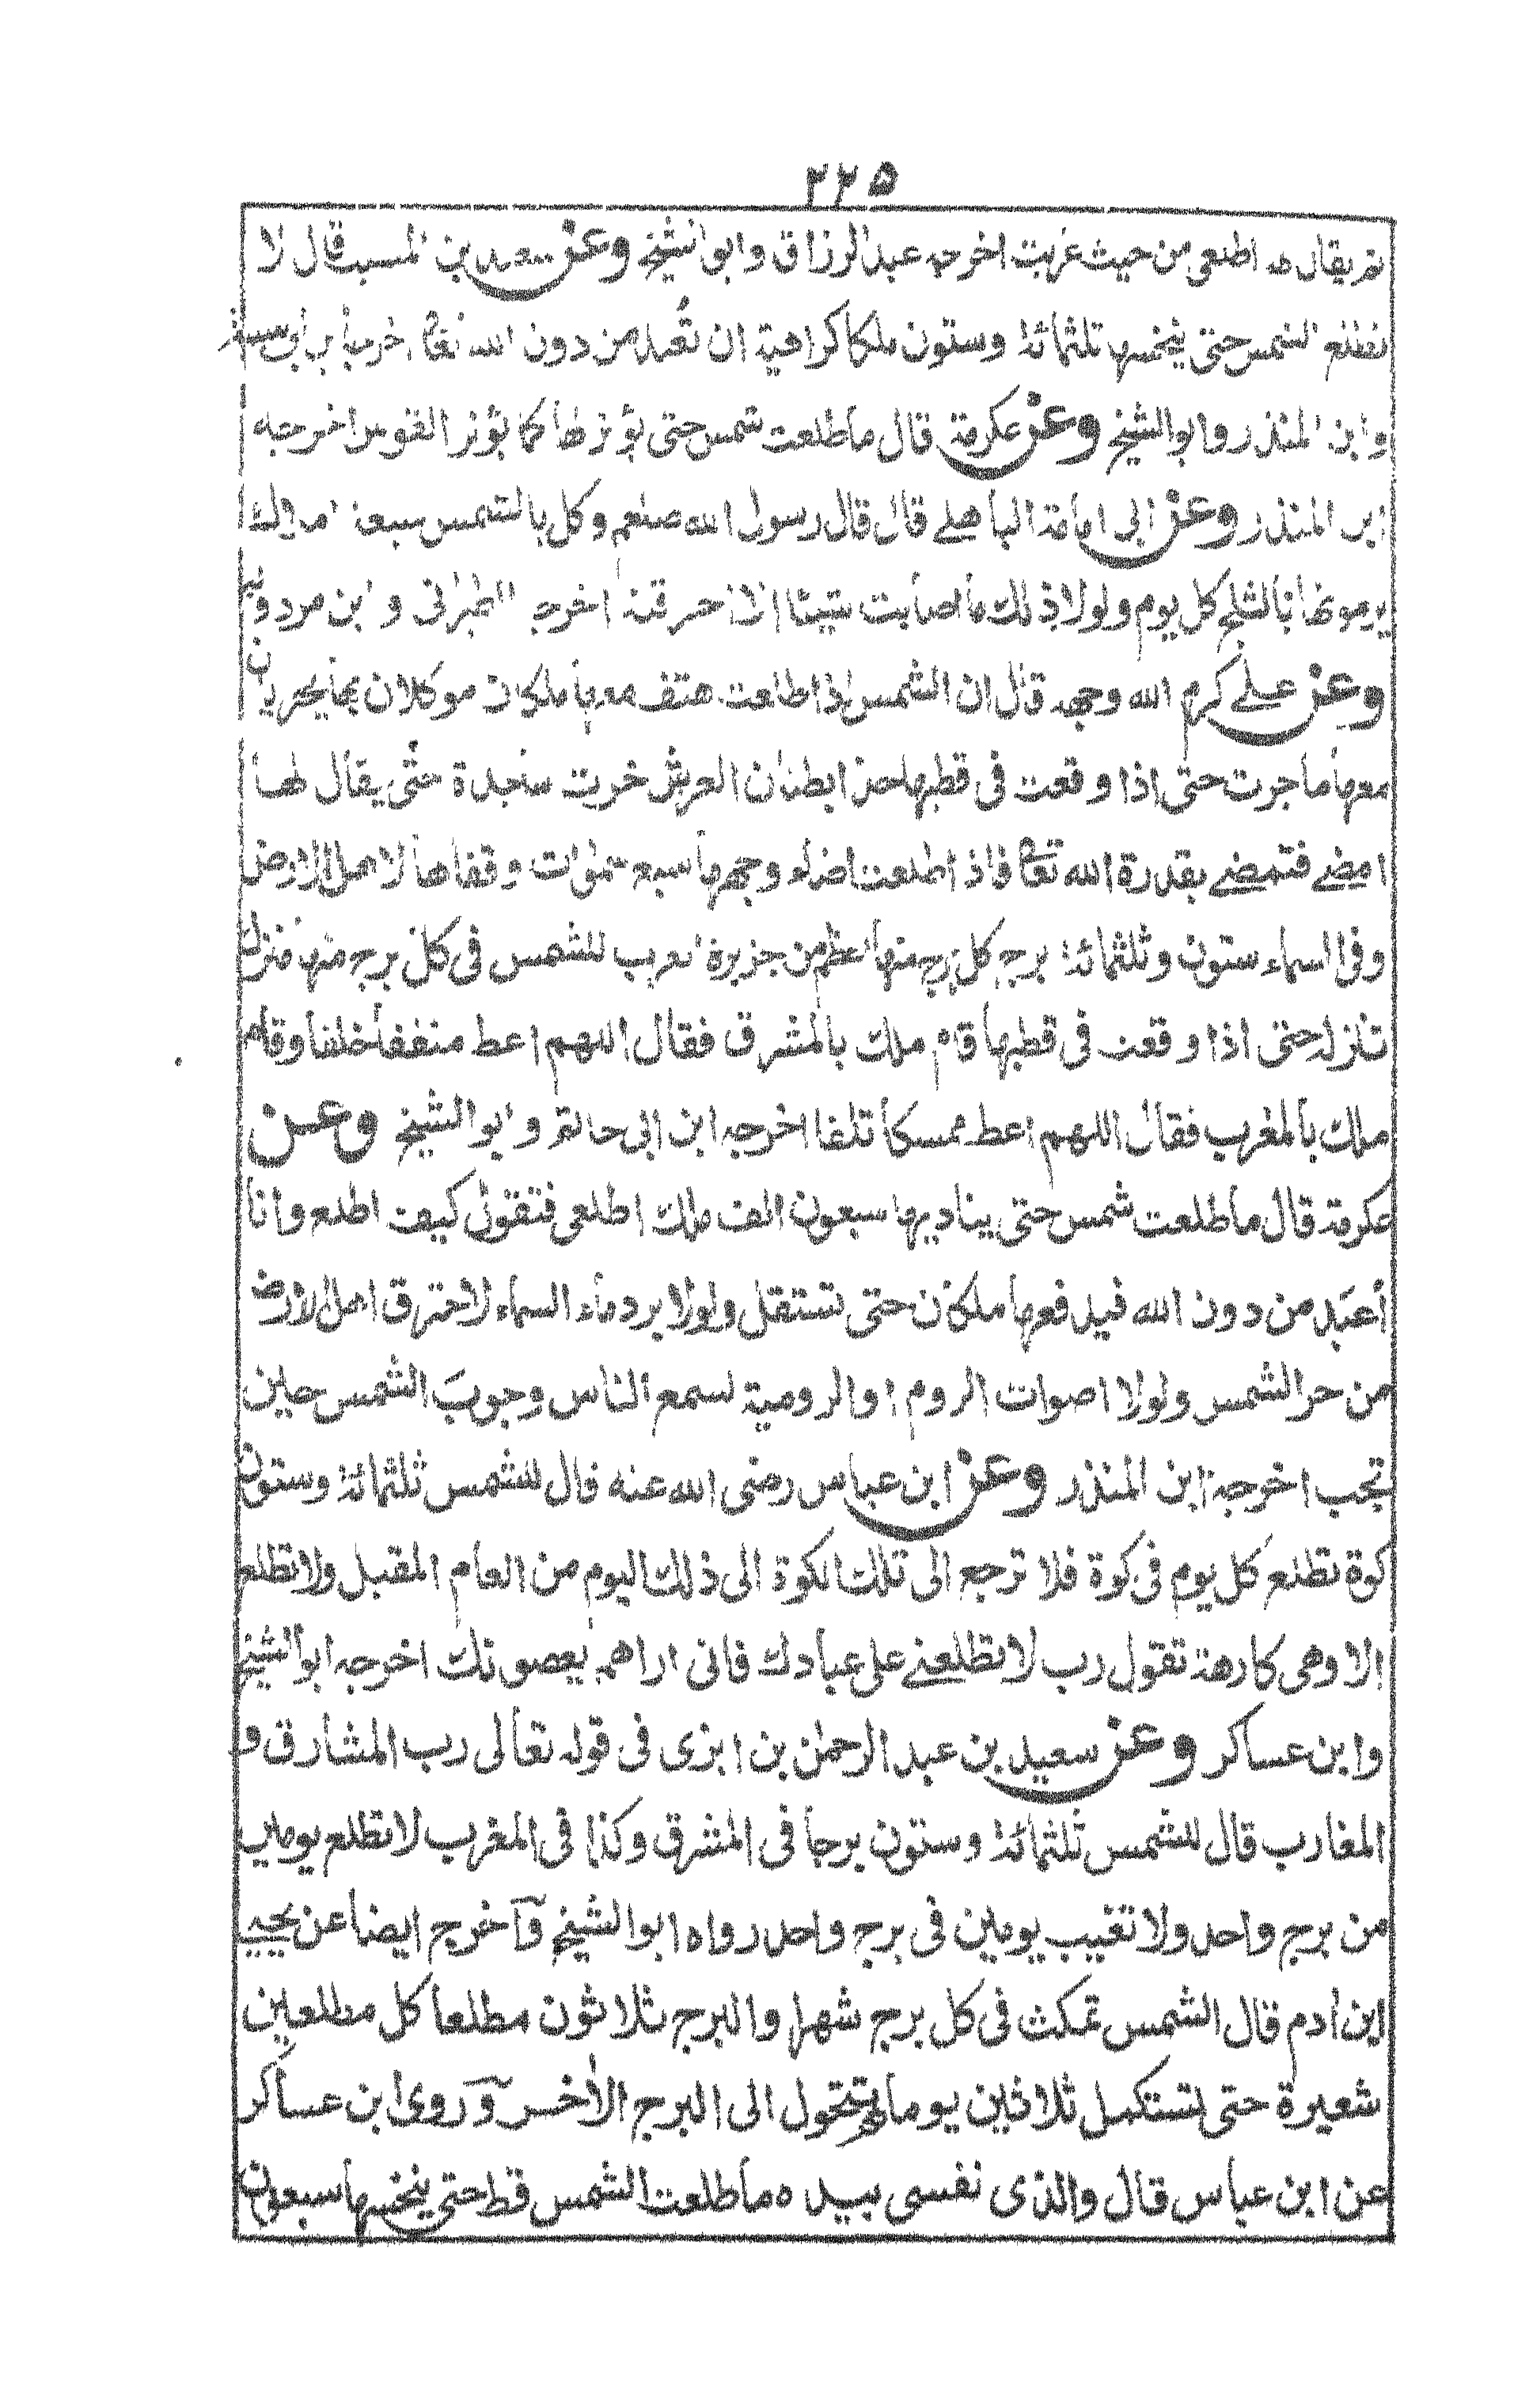 ٢٢٥
ثم يقال له اطلعي من حيث غربت اخرجه عبد الرزاق وابو الشيخ وعن سعيد بن المسيب قال لا
تطلع الشمس حتى ينخسها ثلثمائة وستون ملكا كراهية ان تعبد من دون الله تعا
وابن المنذر وابو الشيخ وعن عكرمة قال ما طلعت شمس حتى يوتر لها كما يوتر القوس اخرجه
ابن المنذر وعن ابي امامة الباهلے قال قال رسول الله صلعم وكل بالشمس سبعة املاك
يرمونها بالثلج كل يوم ولولا ذلك ما اصابت شيئا الا احرقته اخرجه الطبراني وابن مردويه
وعن علے كرم الله وجهه قال ان الشمس اذا طلعت هتف معها ملكان موكلان بها يجريان
معها ما جرت حتى اذا وقعت في قطبها حذ ابطنان العرش خرت ساجدة حتى يقال لها
امضے فتمضے بقدرة الله تعا فاذ اطلعت اضاء وجهها سبع سمٰوات وقفاها لاهل الارض
وفي السماء ستون وثلثمائة برج كل برج منها اعظم من جزيرة العرب للشمس في كل برج منها منزل
تنزله حتى اذا وقعت في قطبها قام ملك بالمشرق فقال اللهم اعط منفقا خلفا وقام
ملك بالمغرب فقال اللهم اعط ممسكا تلفا اخرجه ابن ابي حاتم وابو الشيخ وعن
عكرمة قال ما طلعت شمس حتى يناديها سبعون الف ملك اطلعي فتقول كيف اطلع وانا
أعبَد من دون الله فيدفعها ملكان حتى تستقل ولولا برد ماء السماء لاحترق اهل الارض
من حر الشمس ولولا اصوات الروم او الرومية لسمع الناس وجوبَ الشمس حين
تجب اخرجه ابن المنذر وعن ابن عباس رضى الله عنه قال للشمس ثلثمائة وستون
كوة تطلع كل يوم في كوة فلا ترجع الى تلك الكوة الى ذلك اليوم من العام المقبل ولا تطلع
الا وهى كارهة تقول رب لا تطلعنے على عبادك فانى اراهم يعصونك اخرجه ابو الشيخ
وابن عساكر وعن سعيد بن عبد الرحمٰن بن ابزى في قوله تعالى رب المشارق و
المغارب قال للشمس ثلثمائة وستون برجا في المشرق وكذا في المغرب لا تطلع يومين
من برج واحد ولا تغيب يومين في برج واحد رواه ابو الشيخ وآخرج ايضا عن يحيے
ابن اٰدم قال الشمس تمكث في كل برج شهرا والبرج ثلاثون مطلعا كل مطلعين
شعيرة حتى تستكمل ثلاثين يوما ثم تتحول الى البرج الاٰخر وروى ابن عساكر
عن ابن عباس قال والذى نفسى بيده ما طلعت الشمس قط حتى ينخسها سبعون